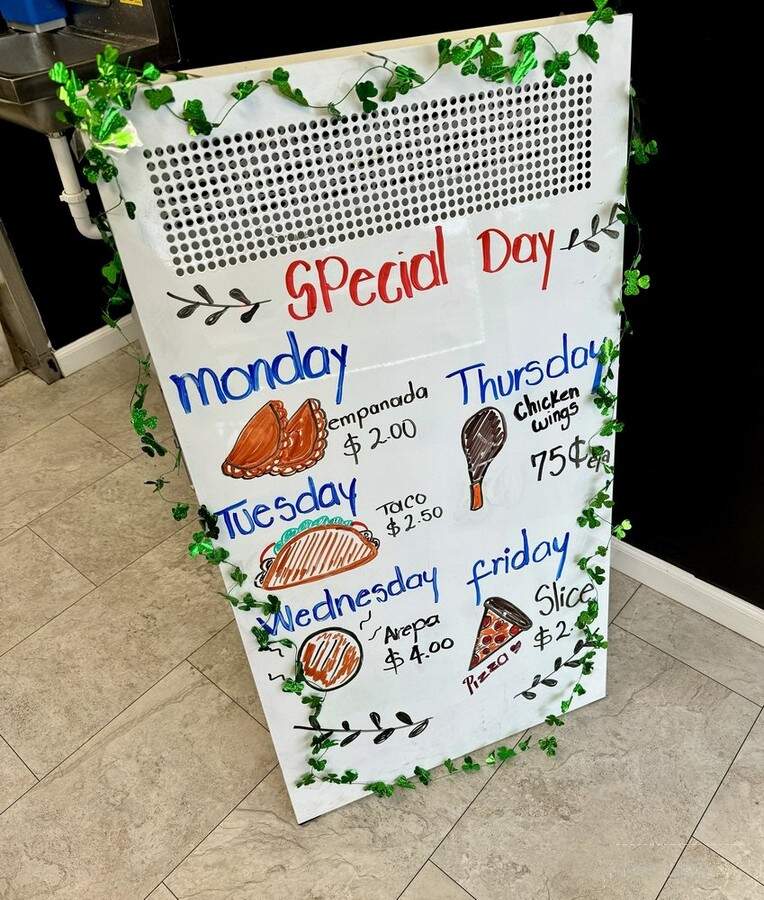 Special Day
monday
empanada
$ 2.00
Tuesday
Taco
$ 2.50
Wednesday
Arepa
$ 4.00
Thursday
Chicken
wings
75¢
friday
Slice
$2.
Pizza